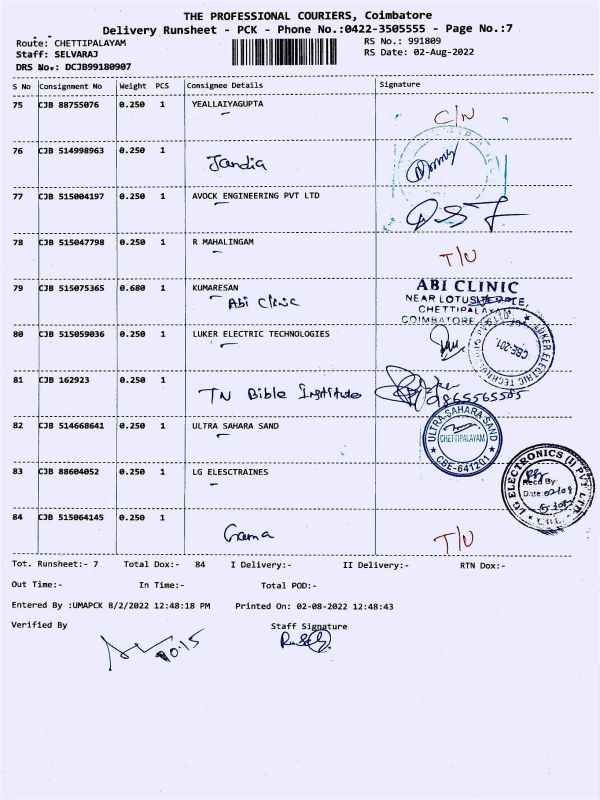 THE PROFESSIONAL COURIERS, Coimbatore
Delivery Runsheet - PCK - Phone No.:0422-3505555 - Page No.:7
Route: CHETTIPALAYAM RS No.: 991809
Staff: SELVARAJ RS Date: 02-Aug-2022
DRS No.: DCJB99180907
S No Consignment No Weight PCS Consignee Details Signature
75 CJB 88755076 0.250 1 YEALLAIYAGUPTA C/N
76 CJB 514998963 0.250 1 Jandia
77 CJB 515004197 0.250 1 AVOCK ENGINEERING PVT LTD
78 CJB 515047798 0.250 1 R MAHALINGAM T/U
79 CJB 515075365 0.680 1 KUMARESAN ABI CLINIC
Abi Clinic NEAR LOTUS TEMPLE,
CHETTIPALAYAM
COIMBATORE
80 CJB 515059036 0.250 1 LUKER ELECTRIC TECHNOLOGIES LUKER ELECTRIC TECHNOLOGIES PVT LTD CBE-201.
81 CJB 162923 0.250 1 TN Bible Institute 9865565585
82 CJB 514668641 0.250 1 ULTRA SAHARA SAND ULTRA SAHARA SAND CHETTIPALAYAM CBE-641201
83 CJB 88604052 0.250 1 LG ELESCTRAINES LG ELECTRONICS (I) PVT LTD. Recd By Date:02/08
84 CJB 515064145 0.250 1 Gama T/U
Tot. Runsheet:- 7 Total Dox:- 84 I Delivery:- II Delivery:- RTN Dox:-
Out Time:- In Time:- Total POD:-
Entered By :UMAPCK 8/2/2022 12:48:18 PM Printed On: 02-08-2022 12:48:43
Verified By Staff Signature